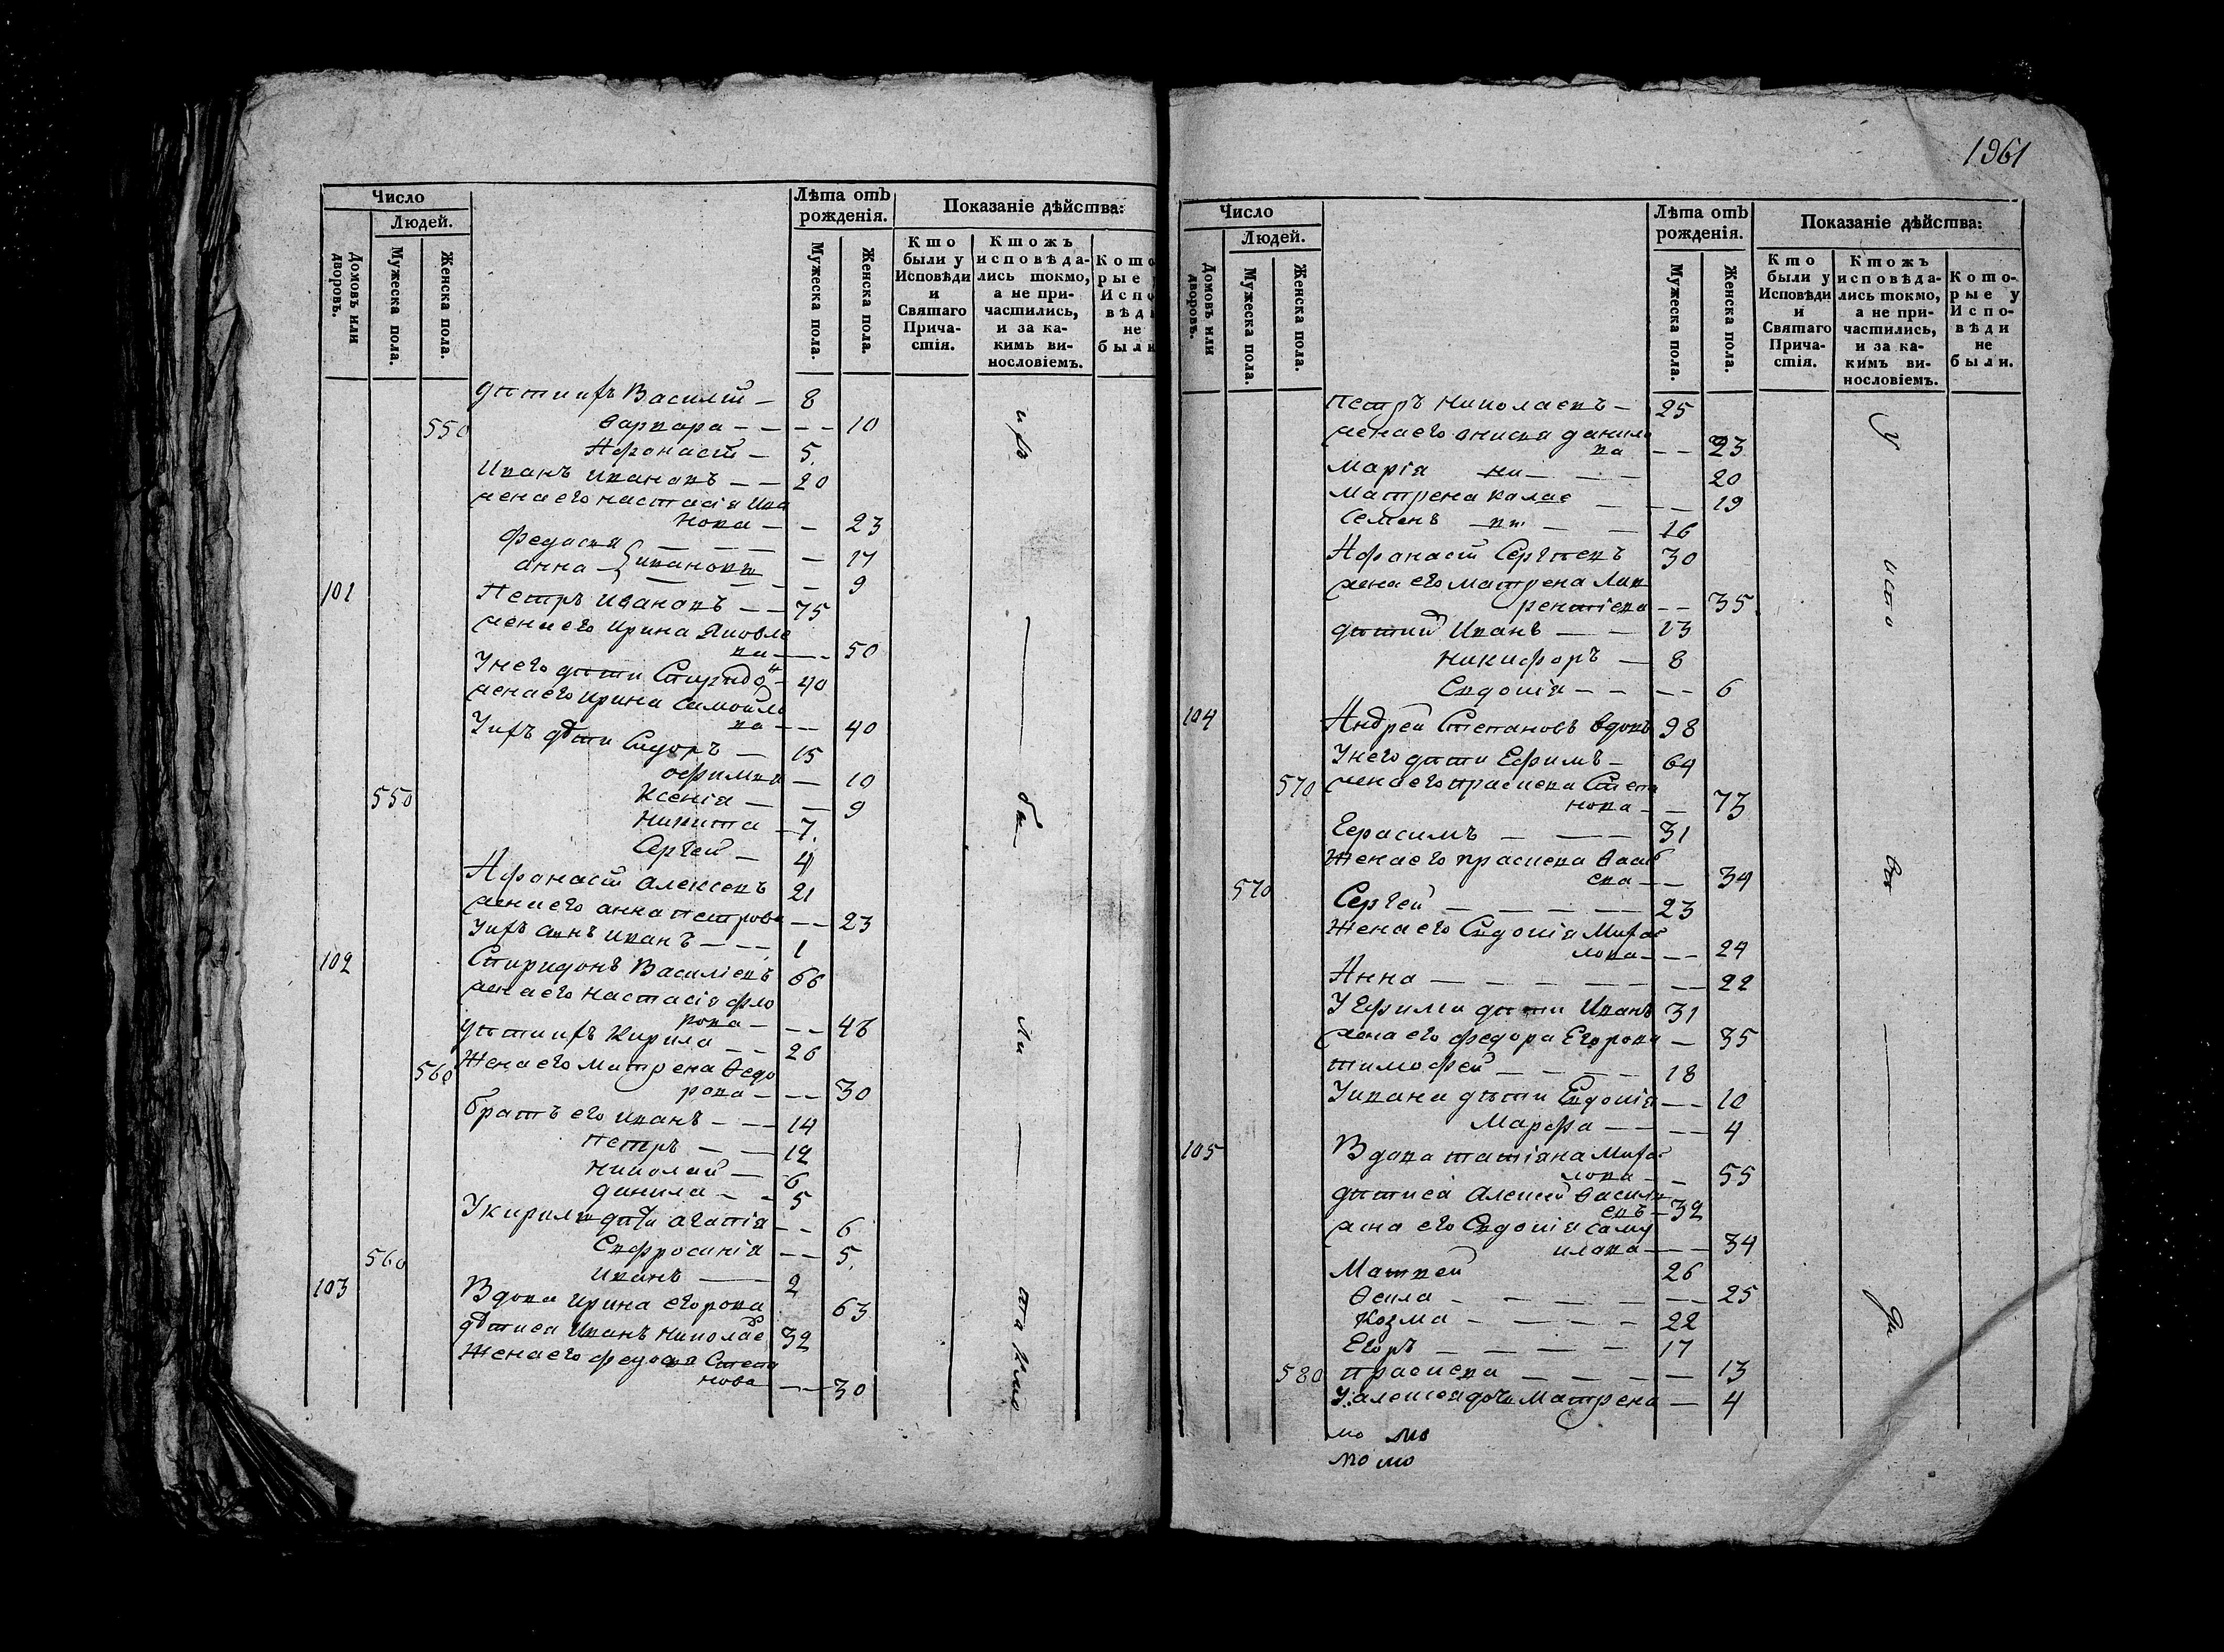 Число
Людей.
Домовъ или дворовъ.
Мужеска пола.
Женска пола.
Лѣта отъ рожденія.
Мужеска пола.
Женска пола.
Показаніе дѣйства:
Кто были у Исповѣди и Святаго Причастія.
Ктожъ исповѣдались токмо, а не причастились, и за какимъ винословіемъ.
Кото
рые
Испо
вѣди
не
были
дѣти ихъ Василій — 8
550 варвара — — — — 10
Афонасій — 5.
Иванъ Ивановъ — — 20
жена его настасія Ива
нова — — 23
Федосия — — — — 17
анна — ивановы — — — 9
101 Петръ Ивановъ — — 75
жена его Ирина Яковле
ва — — — 50
У него дѣти Спиридонъ — 40
жена его ирина Самойло
ва — — 40
У ихъ дѣти Сидоръ — 15
офимия — 10
550 Ксенія — — 9
Никита — 7.
Сергей — 4
Афонасій Алексеевъ 21
жена его анна петрова — — 23
У ихъ сынъ Иванъ — — — 1
102 Спиридонъ Василіевъ 66
жена его настасія фло
рова — — — 48
дѣти ихъ Кирила — — 26
560 Жена его Матрена Ѳедо
рова — — — 30
братъ его Иванъ — — — 14
петръ — — 12
Николай — 6
данила — — 5
У кирилы дѣти агапія — — 6
Евфросинія — — 5.
560 Иванъ — — 2
103 Вдова Ирина егорова 63
дѣти еа Иванъ Николае 32
Жена его федосия Степа
нова — — 30
ихъ
бы
ли
та кмо
1961
Число
Людей.
Домовъ или дворовъ.
Мужеска пола.
Женска пола.
Лѣта отъ рожденія.
Мужеска пола.
Женска пола.
Показаніе дѣйства:
Кто были у Исповѣди и Святаго Причастія.
Ктожъ исповѣдались токмо, а не причастились, и за какимъ винословіемъ.
Которые у Исповѣди не были.
петръ Николаевъ — 25
жена его анисия данило
ва — — 23
Марія — — — 20
Матрена — — — 19
Семенъ — — — 16
Афанасій Сергѣевъ 30
жена его Матрена Лав
рентіева — — 35
дѣти Иванъ — — 13
Никифоръ — 8
Евдокія — — — — 6
104 Андрей Степановъ вдовъ 98
У него дѣти Ефимъ — 64
570 жена его праскева Степа
нова — — 73
Герасимъ — — — 31
Жена его праскева Васи
ева — — 34
570 Сергей — — — — 23
Жена его Евдокія Миха
лова — — — 24
Анна — — — — — — 22
У Ефима дѣти Иванъ 31
жена его федора Егорова — 35
тимофей — — — — 18
У ивана дѣти Евдокія — — 10
Марфа — — — — 4
105 Вдова татіана Миха
лова — — 55
дѣти еа Алексей Василі
евъ — 32
жена его Евдокія Саму
илова — — — 34
Матвей 26
Ѳекла — — — — — 25
Козма — — — — 22
Егоръ — — — — 17
580 праскева — — — — 13
У алексея дочь Матрена — 4
мо мо
мо мо
у
испо
вѣ
ди